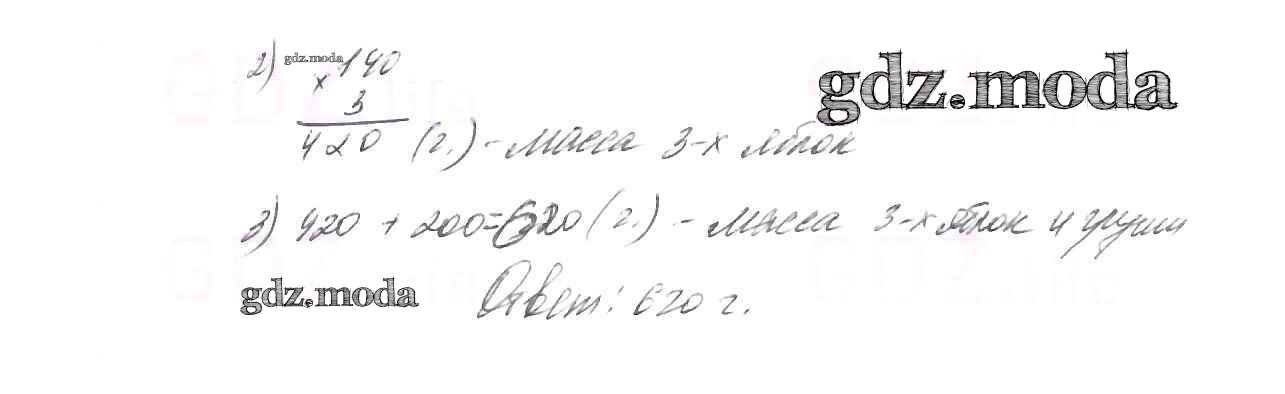 2) gdz.moda × 140
gdz.moda
3
420 (г.) - масса 3-х яблок
3) 420 + 200 = 620 (г.) - масса 3-х яблок и груши
gdz.moda
Ответ: 620 г.